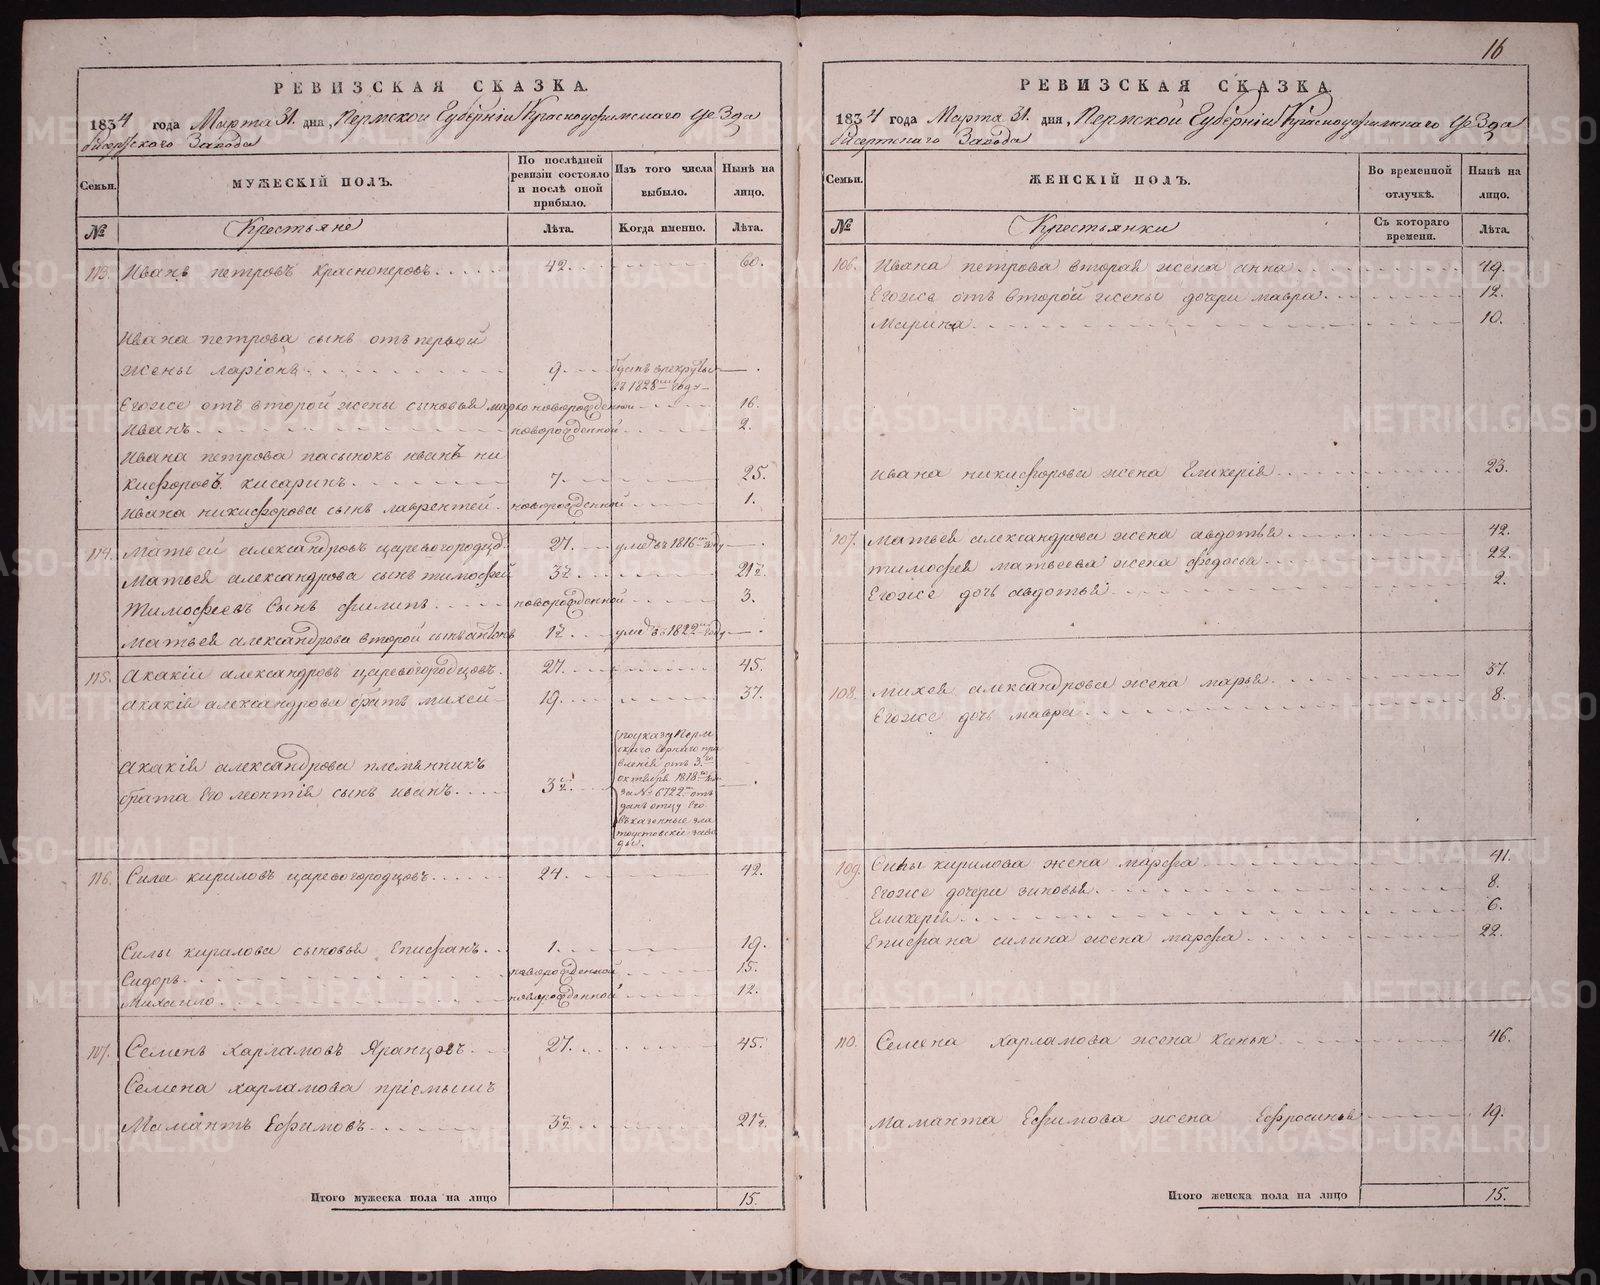 16
РЕВИЗСКАЯ СКАЗКА.
1834 года Марта 31. дня, Пермской Губерніи Красноуфимскаго уезда
бисертскаго Завода
Семьи.
МУЖЕСКІЙ ПОЛЪ.
По послѣдней ревизіи состояло и послѣ оной прибыло.
Изъ того числа выбыло.
Нынѣ на лицо.
№
Крестьяне
Лѣта.
Когда именно.
Лѣта.
113. Иванъ петровъ красноперовъ 42. 60.
Ивана петрова сынъ отъ первой
жены ларіонъ 9. отданъ врекруты
въ 1828 году
Егоже отъ второй жены сыновья марко новорожденной 16.
Иванъ новорожденной 2.
Ивана петрова пасынокъ иванъ ни
кифоровъ кисаринъ 7. 25.
Ивана никифорова сынъ лаврентей новорожденной 1.
114. Матвей александровъ царевогородцо. 27. умре въ 1816 году
Матвея александрова сынъ тимофей 3½ 21½.
Тимофеевъ Сынъ филипъ новорожденной 3.
Матвея александрова второй сынъ антонъ 1½ умре въ 1822 году
115. Акакій александровъ царевогородцовъ 27. 45.
акакія александрова братъ михей 19. 37.
акакія александрова племянникъ
брата Его леонтія сынъ иванъ 3½
поуказу Перм
скаго горнаго пра
вленія отъ 3го
октября 1818 года
за № 6722 от
данъ отцу Его
въ казенные зла
тоустовскіе заво
ды.
116. Сила кириловъ царевогородцовъ 24. 42.
Силы кирилова сыновья Епифанъ 1. 19.
Сидоръ новорожденной 15.
Михаило новорожденной 12.
117. Семенъ харламовъ Яранцовъ 27. 45.
Семена харламова пріемышъ
Мамантъ Ефимовъ 3½ 21½.
Итого мужеска пола на лицо 15.
РЕВИЗСКАЯ СКАЗКА.
1834 года Марта 31. дня, Пермской Губерніи Красноуфимскаго уезда
бисертскаго Завода
Семьи.
ЖЕНСКІЙ ПОЛЪ.
Во временной отлучкѣ.
Нынѣ на лицо.
№
Крестьянки
Съ котораго времени.
Лѣта.
106. Ивана петрова вторая жена анна 49.
Егоже отъ второй жены дочери мавра 12.
Марина 10.
ивана никифорова жена Гликерія 23.
107. Матвея александрова жена авдотья 42.
тимофея матвеева жена федосья 22.
Егоже дочь авдотья 2.
108. михея александрова жена марья 37.
Егоже дочь мавра 8.
109. Силы кирилова жена марфа 41.
Егоже дочери зиновья 8.
Гликерія 6.
Епифана силина жена марфа 22.
110. Семена харламова жена ксенья 46.
Маманта Ефимова жена Ефросинья 19.
Итого женска пола на лицо 15.